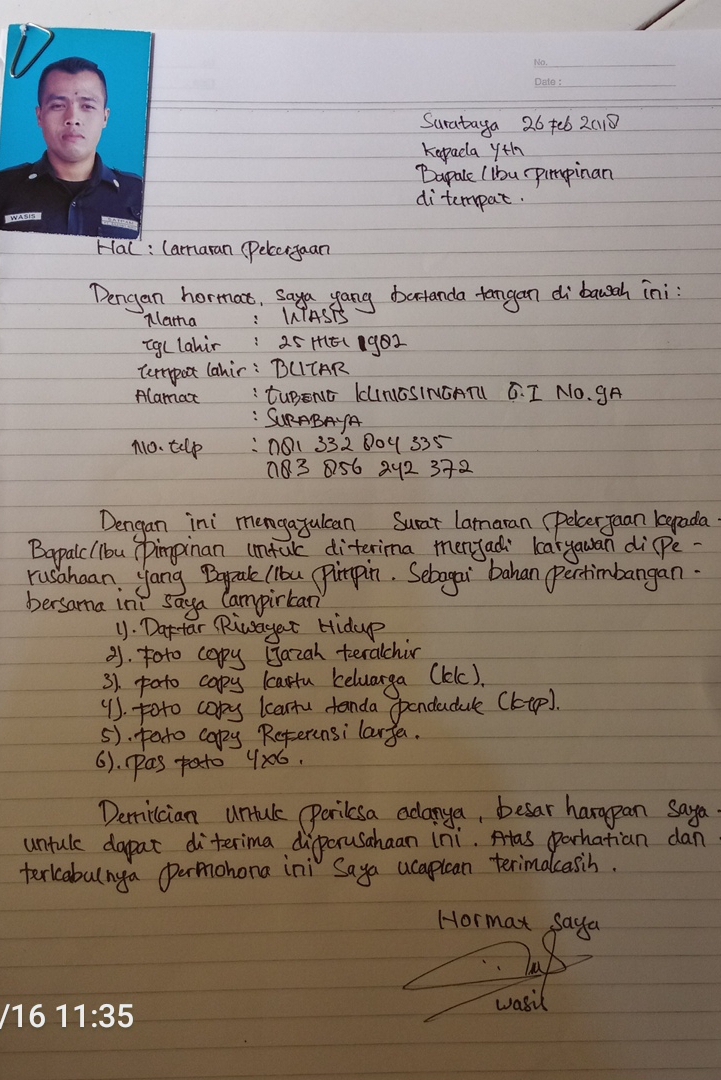 No.
Date :
Surabaya 26 Feb 2018
Kepada Yth
Bapak / Ibu Pimpinan
di tempat.
WASIS
SATPAM
Hal : Lamaran Pekerjaan
Dengan hormat, saya yang bertanda tangan di bawah ini :
Nama : WASIS
Tgl lahir : 25 MEI 1982
Tempat lahir : BLITAR
Alamat : GUBENG KLINGSINGAN G.I No.9A
: SURABAYA
No. telp : 081 332 804 335
083 856 242 372
Dengan ini mengajukan Surat lamaran Pekerjaan kepada -
Bapak/Ibu Pimpinan untuk diterima menjadi karyawan di Pe -
rusahaan yang Bapak/Ibu Pimpin. Sebagai bahan pertimbangan -
bersama ini saya lampirkan
1). Daftar Riwayat Hidup
2). Foto copy Ijazah terakhir
3). Foto copy kartu keluarga (kk).
4). Foto copy kartu tanda penduduk (ktp).
5). Foto copy Referensi kerja.
6). Pas Foto 4x6.
Demikian untuk periksa adanya, besar harapan saya -
untuk dapat di terima diperusahaan ini. Atas perhatian dan
terkabulnya permohona ini Saya ucapkan terimakasih.
Hormat saya
wasis
/16 11:35